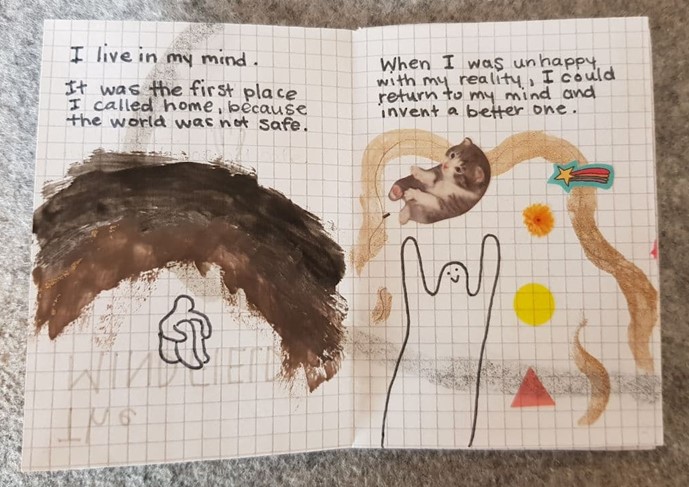 I live in my mind.
It was the first place
I called home, because
the world was not safe.
When I was unhappy
with my reality, I could
return to my mind and
invent a better one.